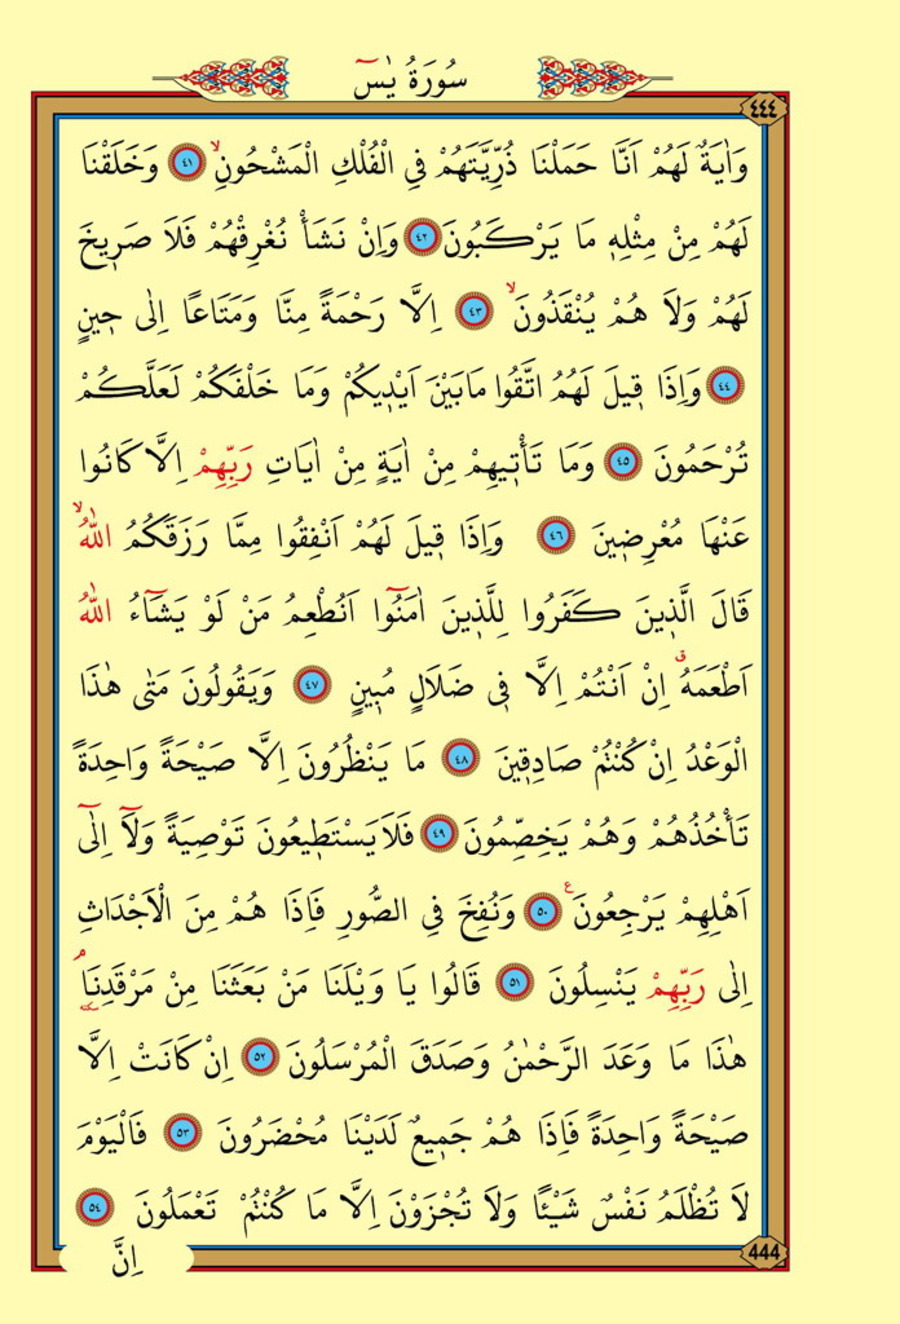 سُورَةُ يٰسٓ
٤٤٤
وَاٰيَةٌ لَهُمْ اَنَّا حَمَلْنَا ذُرِّيَّتَهُمْ فِي الْفُلْكِ الْمَشْحُونِۙ ﴿٤١﴾ وَخَلَقْنَا
لَهُمْ مِنْ مِثْلِه۪ مَا يَرْكَبُونَ ﴿٤٢﴾ وَاِنْ نَشَأْ نُغْرِقْهُمْ فَلَا صَر۪يخَ
لَهُمْ وَلَا هُمْ يُنْقَذُونَۙ ﴿٤٣﴾ اِلَّا رَحْمَةً مِنَّا وَمَتَاعًا اِلٰى ح۪ينٍ
﴿٤٤﴾ وَاِذَا ق۪يلَ لَهُمُ اتَّقُوا مَابَيْنَ اَيْد۪يكُمْ وَمَا خَلْفَكُمْ لَعَلَّكُمْ
تُرْحَمُونَ ﴿٤٥﴾ وَمَا تَأْت۪يهِمْ مِنْ اٰيَةٍ مِنْ اٰيَاتِ رَبِّهِمْ اِلَّا كَانُوا
عَنْهَا مُعْرِض۪ينَ ﴿٤٦﴾ وَاِذَا ق۪يلَ لَهُمْ اَنْفِقُوا مِمَّا رَزَقَكُمُ اللّٰهُۙ
قَالَ الَّذ۪ينَ كَفَرُوا لِلَّذ۪ينَ اٰمَنُٓوا اَنُطْعِمُ مَنْ لَوْ يَشَٓاءُ اللّٰهُ
اَطْعَمَهُۗ اِنْ اَنْتُمْ اِلَّا ف۪ي ضَلَالٍ مُب۪ينٍ ﴿٤٧﴾ وَيَقُولُونَ مَتٰى هٰذَا
الْوَعْدُ اِنْ كُنْتُمْ صَادِق۪ينَ ﴿٤٨﴾ مَا يَنْظُرُونَ اِلَّا صَيْحَةً وَاحِدَةً
تَأْخُذُهُمْ وَهُمْ يَخِصِّمُونَ ﴿٤٩﴾ فَلَا يَسْتَط۪يعُونَ تَوْصِيَةً وَلَٓا اِلٰٓى
اَهْلِهِمْ يَرْجِعُونَ۟ ﴿٥٠﴾ وَنُفِخَ فِي الصُّورِ فَاِذَا هُمْ مِنَ الْاَجْدَاثِ
اِلٰى رَبِّهِمْ يَنْسِلُونَ ﴿٥١﴾ قَالُوا يَا وَيْلَنَا مَنْ بَعَثَنَا مِنْ مَرْقَدِنَاۢۜ
هٰذَا مَا وَعَدَ الرَّحْمٰنُ وَصَدَقَ الْمُرْسَلُونَ ﴿٥٢﴾ اِنْ كَانَتْ اِلَّا
صَيْحَةً وَاحِدَةً فَاِذَا هُمْ جَم۪يعٌ لَدَيْنَا مُحْضَرُونَ ﴿٥٣﴾ فَالْيَوْمَ
لَا تُظْلَمُ نَفْسٌ شَيْـًٔا وَلَا تُجْزَوْنَ اِلَّا مَا كُنْتُمْ تَعْمَلُونَ ﴿٥٤﴾
444
اِنَّ